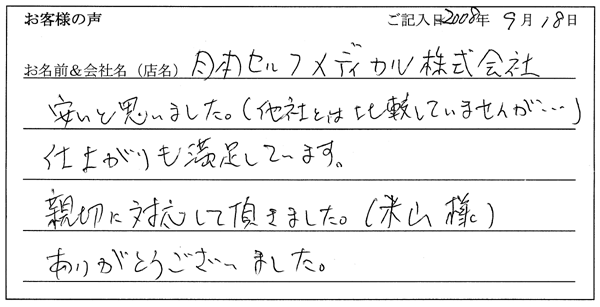 お客様の声 ご記入日2008年 9月 18日
お名前&会社名（店名） 日本セルフメディカル株式会社
安いと思いました。(他社とは比較していませんが…)
仕上がりも満足しています。
親切に対応して頂きました。(米山様)
ありがとうございました。